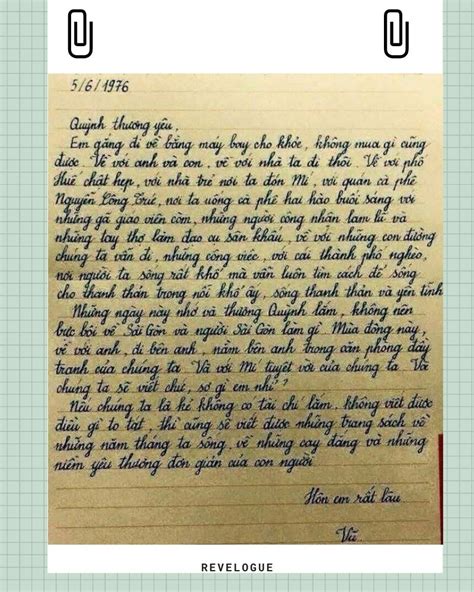 5/6/1976
Quỳnh thương yêu,
Em gắng đi về bằng máy bay cho khỏe, không mua gì cũng
được. Về với anh và con, về với nhà ta đi thôi. Về với phố
Huế chật hẹp, với nhà trẻ nơi ta đón Mí, với quán cà phê
Nguyễn Công Trứ, nơi ta uống cà phê hai hào buổi sáng với
những gã giao viên còm, những người công nhân lam lũ và
những tay thợ làm đạo cụ sân khấu, về với những con đường
chúng ta vẫn đi, những công việc, với cái thành phố nghèo,
nơi người ta sống rất khổ mà vẫn luôn tìm cách để sống
cho thanh thản trong nỗi khổ ấy, sống thanh thản và yên tĩnh
Những ngày này nhớ và thương Quỳnh lắm, không nên
bực bội về Sài Gòn và người Sài Gòn làm gì. Mùa đông này,
về với anh, đi bên anh, nằm bên anh trong căn phòng đầy
tranh của chúng ta. Và với Mí tuyệt vời của chúng ta. Và
chúng ta sẽ viết chứ, sợ gì em nhỉ?
Nếu chúng ta là kẻ không có tài chi lắm, không viết được
điều gì to tát, thì cũng sẽ viết được những trang sách về
những năm tháng ta sống, về những cay đắng và những
niềm yêu thương đơn giản của con người
Hôn em rất lâu
Vũ
REVELOGUE